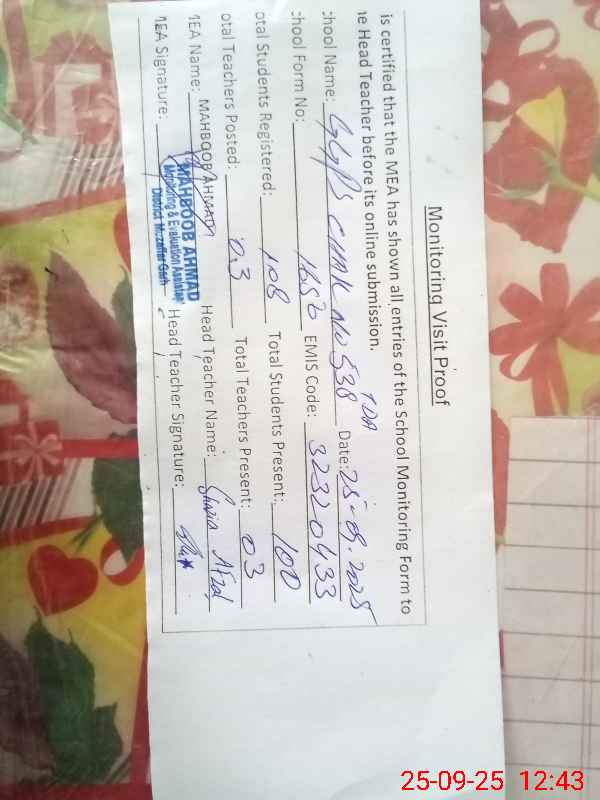 Monitoring Visit Proof
is certified that the MEA has shown all entries of the School Monitoring Form to
he Head Teacher before its online submission.
chool Name: GGPS CHAK NO 538 TDA Date: 25-09.2025
chool Form No: 1652 EMIS Code: 32320433
otal Students Registered: 108 Total Students Present: 100
otal Teachers Posted: 03 Total Teachers Present: 03
MEA Name: MAHBOOB AHMAD Head Teacher Name: Shazia Afzal
MEA Signature: Head Teacher Signature:
MAHBOOB AHMAD
Monitoring & Evaluation Assistant
District Muzaffar Garh
25-09-25 12:43